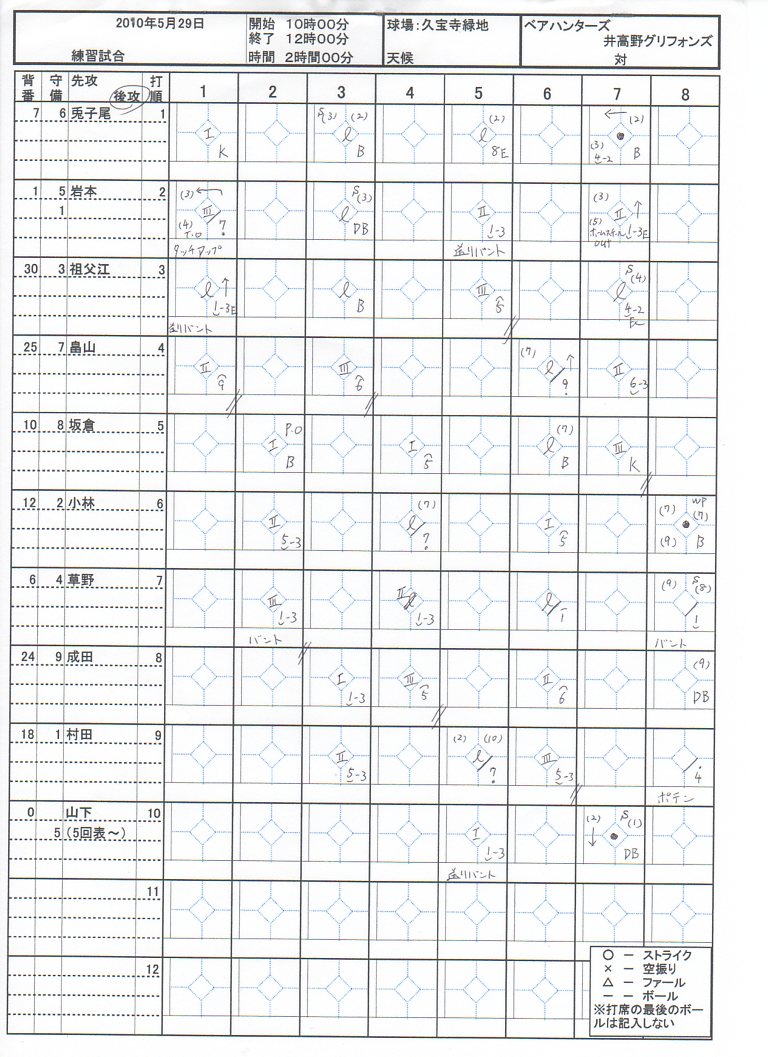 2010年5月29日
練習試合
開始 10時00分
終了 12時00分
時間 2時間00分
球場：久宝寺緑地
天候
ベアハンターズ
井高野グリフォンズ
対
背番 守備 先攻 後攻 打順 1 2 3 4 5 6 7 8
7 6 兎子尾 1
I K
S(3) (2) l B
(2) l 8E
(2) (3) 4-2 B
1 5 岩本 2
1
(3) III 7 (4) T.O
タッチアップ
S(3) l DB
II 1-3
送りバント
(3) II (5) ホームスチール 1-3E out
30 3 祖父江 3
l 1-3E
送りバント
l B
III 5
S(4) l 4-2 Fc
25 7 畠山 4
II 9
III 6
(7) l 9
II 6-3
10 8 坂倉 5
P.O I B
I 5
(7) l B
III K
12 2 小林 6
II 5-3
(7) l 7
I 5
WP (7) (7) (9) B
6 4 草野 7
III 1-3
バント
II l 1-3
l 1
(9) S(8) 1
バント
24 9 成田 8
I 1-3
III 5
II 6
(9) DB
18 1 村田 9
II 5-3
(2) (10) l 7
III 5-3
4
ポテン
0 山下 10
5 (5回表～)
I 1-3
送りバント
(2) S(1) DB
11
12
○ － ストライク
× － 空振り
△ － ファール
－ － ボール
※打席の最後のボー
ルは記入しない